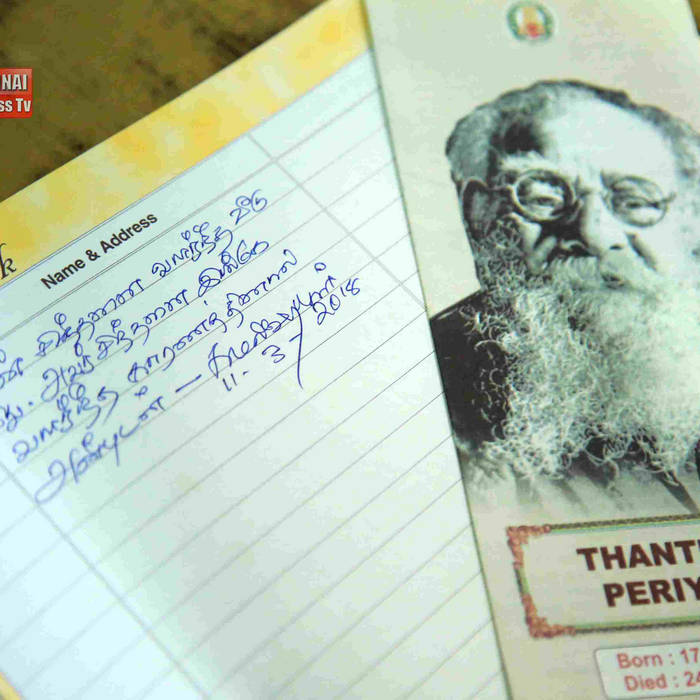 NAI
ss Tv
k
Name & Address
சிந்தனை வளர்ந்த வீடு
து. அவர் சிந்தனை இங்கு
வளர்ந்த காரணத்தினால்
அன்புடன் –
11-3-/2018
THANT
PERIY
Born : 17
Died : 24